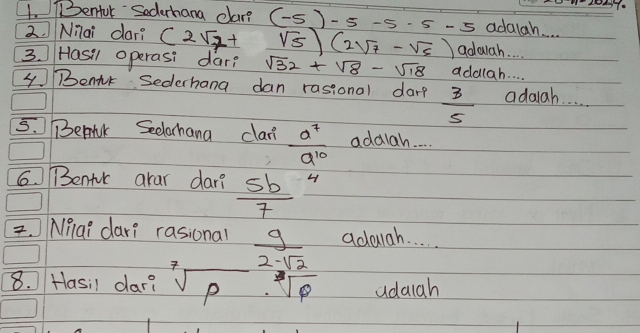 20-11-2024.
1. Bentuk Sederhana dari (-5) -5 -5 -5 -5 adalah....
2. Nilai dari (2√7 + √5) (2√7 - √5) adalah....
3. Hasil operasi dari √32 + √8 - √18 adalah....
4. Bentuk Sederhana dan rasional dari 3/5 adalah.....
5. Bentuk Sederhana dari a⁷/a¹⁰ adalah....
6. Bentuk akar dari 5b⁴/7
7. Nilai dari rasional 9/2-√2 adalah.....
8. Hasil dari ⁷√p . √p adalah